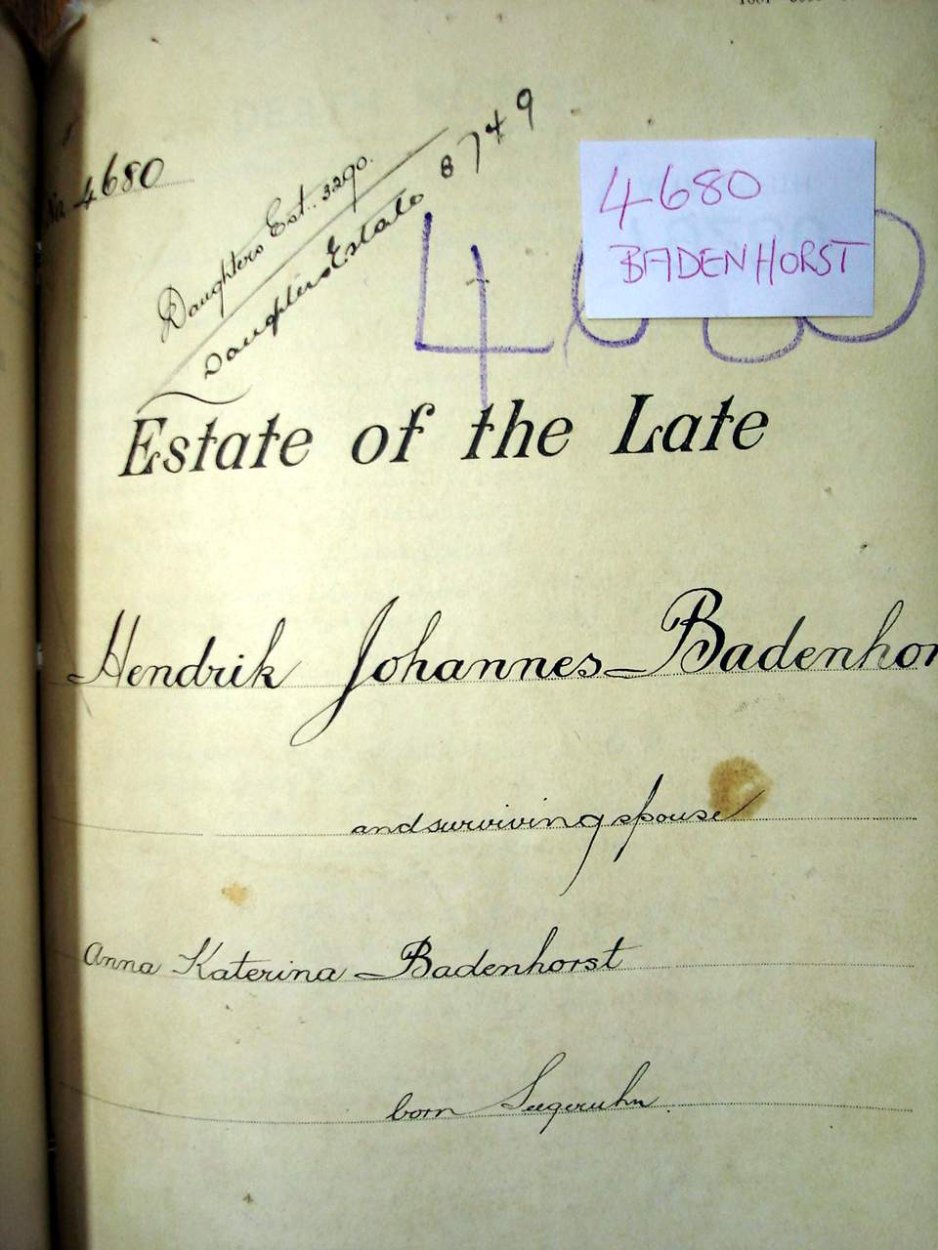 No 4680
Daughters Est. 3290.
Daughters Estate 8749
4680
BADENHORST
Estate of the Late
Hendrik Johannes Badenhor
and surviving spouse
Anna Katerina Badenhorst
born Seegeruhn.